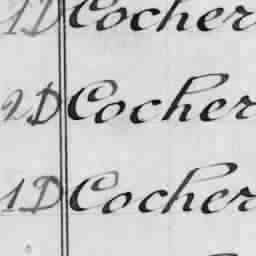 1D Cocher
2D Cocher
1D Cocher